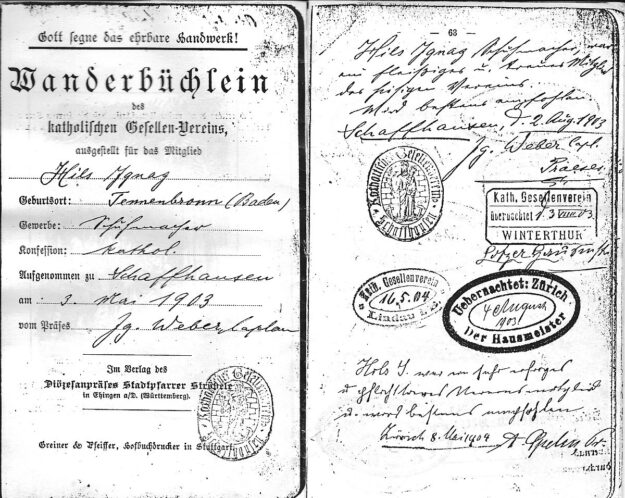 Gott segne das ehrbare Handwerk!
Wanderbüchlein
des
katholischen Gesellen-Vereins,
ausgestellt für das Mitglied
Hils Ignaz
Geburtsort: Tennenbronn (Baden)
Gewerbe: Schuhmacher
Konfession: kathol.
Aufgenommen zu Schaffhausen
am 3. Mai 1903
vom Präses Jg. Weber, Caplan
Im Verlag des
Diözesanpräses Stadtpfarrer Ströbele
in Ehingen a/D. (Württemberg).
Greiner & Pfeiffer, Hofbuchdrucker in Stuttgart.
Katholischer Gesellenverein
Schaffhausen
— 63 —
Hils Ignaz Schuhmacher, war
ein fleißiges u. treues Mitglied
des hiesigen Vereins.
Wird bestens empfohlen.
Schaffhausen, d. 2. Aug. 1903
Jg. Weber Capl.
Praeses.
Katholischer Gesellenverein
Schaffhausen
Kath. Gesellenverein
übernachtet 3 VIII 03
WINTERTHUR
Kath. Gesellenverein
16.5.04
Lindau
Uebernachtet: Zürich
4 August
1903
Der Hausmeister
Hils J. war ein sehr eifriges
u. Vereinsmitglied
u. wird bestens empfohlen
Zürich 8. Mai 1904